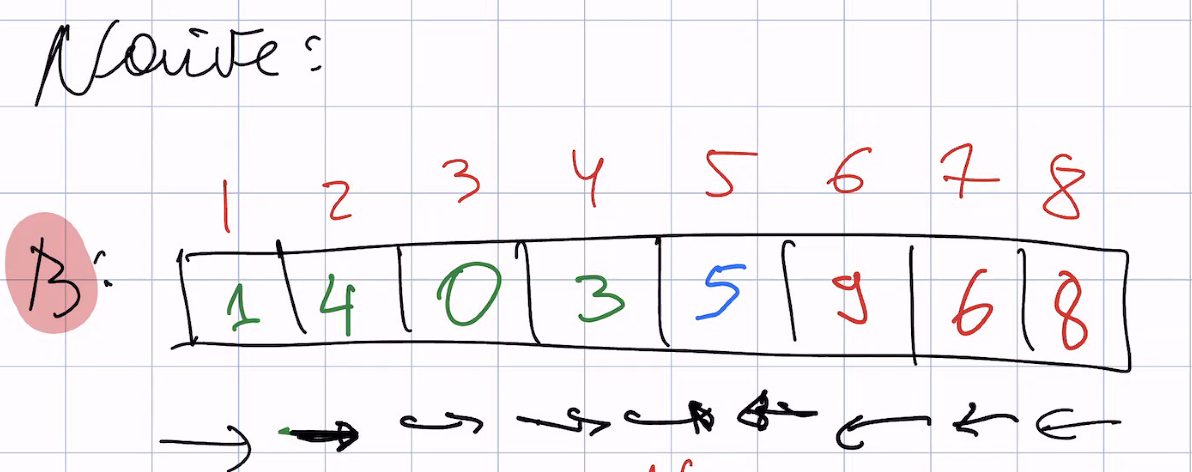 Naive:
1 2 3 4 5 6 7 8
B: 1 4 0 3 5 9 6 8